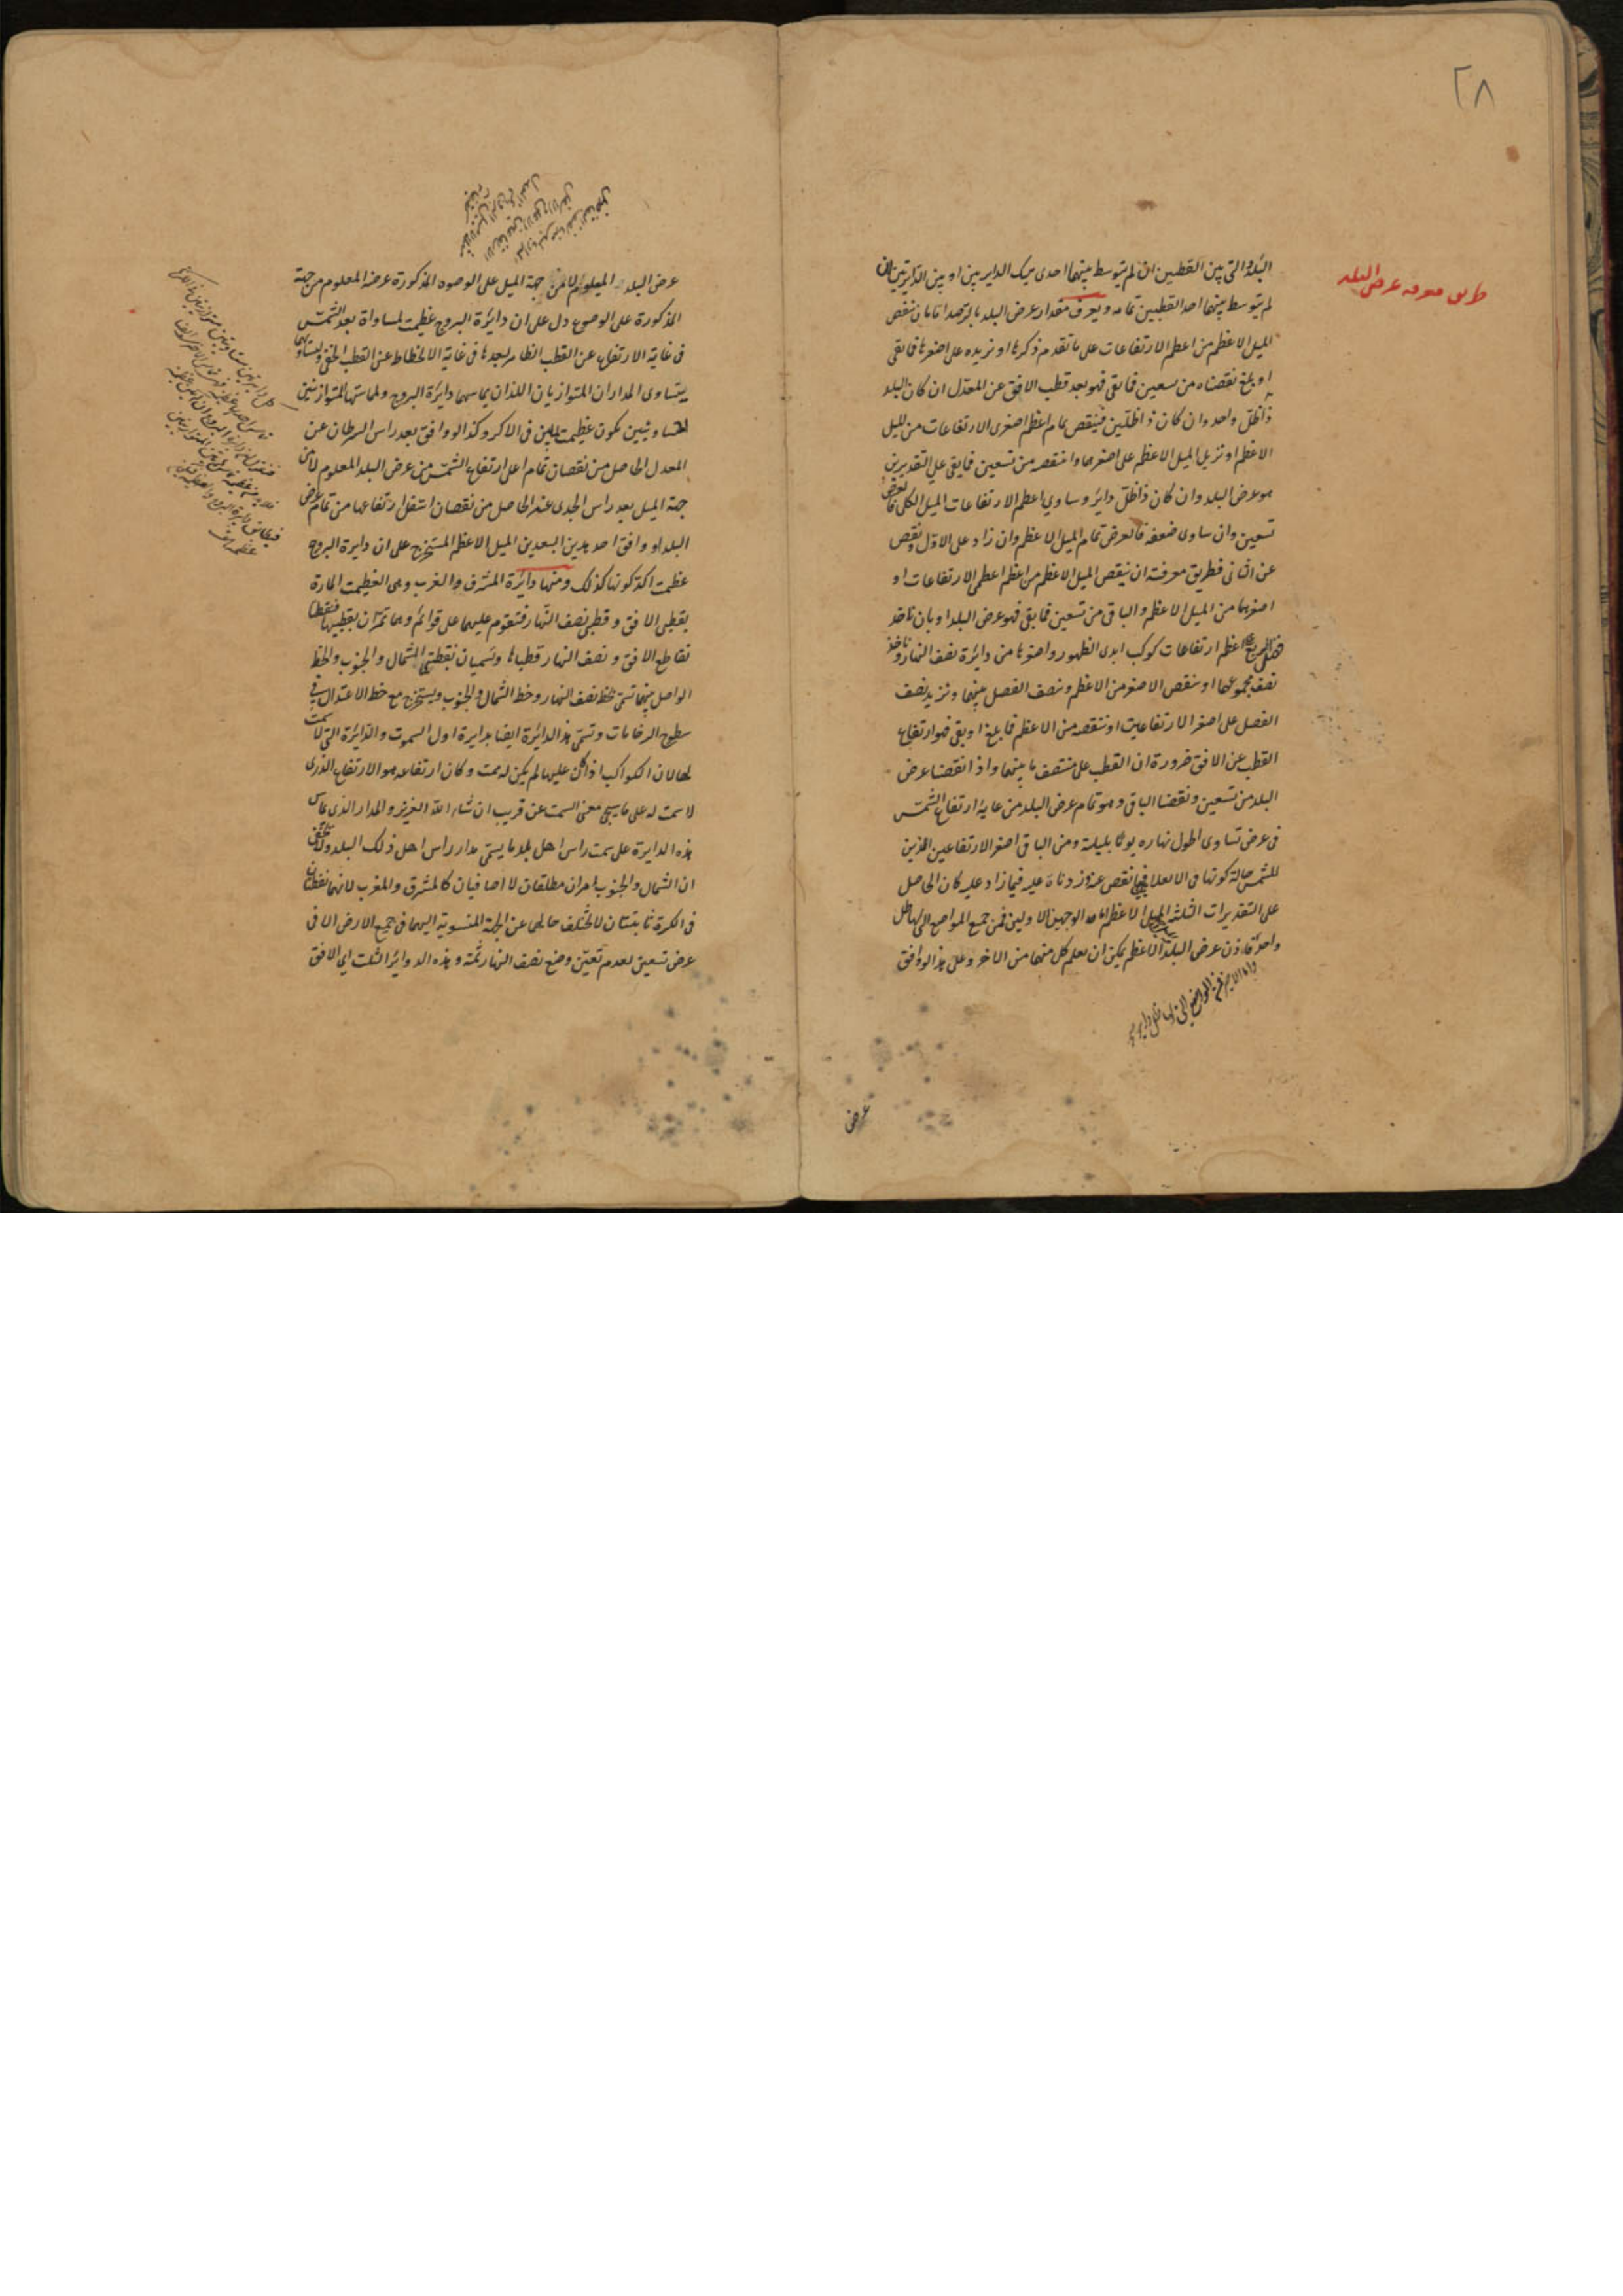 ٢٨
طريق معرفة عرض البلد
البلد والتي بين القطبين ان لم يتوسط بينهما احدى تينك الدايرتين او بين الدايرتين ان
لم يتوسط بينهما احد القطبين تمامه ويعرف مقدار عرض البلد بالرصد اما بان ننقص
الميل الاعظم من اعظم الارتفاعات على ما تقدم ذكرها او نزيده على اصغرها فما بقى
او بلغ نقصناه من تسعين فما بقى فهو بعد قطب الافق عن المعدل ان كان البلد
ذا ظل واحد وان كان ذا ظلين فينقص تمام اعظم اصغرى الارتفاعات من الميل
الاعظم او نزيد الميل الاعظم على اصغرهما وننقصه من تسعين فما بقى على التقديرين
هو عرض البلد وان كان ذا ظل دائر وساوى اعظم الارتفاعات الميل الكلى فالعرض
تسعين وان ساوى ضعفه فالعرض تمام الميل الاعظم وان زاد على الاول ونقص
عن الثانى فطريق معرفته ان ينقص الميل الاعظم من اعظم اعظمى الارتفاعات او
اصغرهما من الميل الاعظم والباقى من تسعين فما بقى فهو عرض البلد او بان ناخذ
اعظم ارتفاعات كوكب ابدى الظهور واصغرها من دائرة نصف النهار وناخذ
نصف مجموعهما او ننقص الاصغر من الاعظم ونصف الفضل بينهما ونزيد نصف
الفضل على اصغر الارتفاعين او ننقصه من الاعظم فما بلغ او بقى فهو ارتفاع
القطب عن الافق ضرورة ان القطب على منتصف ما بينهما واذا نقصنا عرض
البلد من تسعين ونقصنا الباقى وهو تمام عرض البلد من غاية ارتفاع الشمس
فى عرض تساوى اطول نهاره يوما بليلته ومن الباقى اصغر الارتفاعين الذين
للشمس حالة كونها فى الانقلاب فيما نقص عنه وزدناه عليه فيما زاد عليه كان الحاصل
على التقديرات الثلثة الميل الاعظم اما الوجهين الاولين فمن جميع المواضع التى لها ظل
واحد فاذن عرض البلد الاعظم يمكن ان يعلم كل منهما من الاخر وعلى هذا لو وافق
عرض
عرض البلد المعلوم لا من جهة الميل على الوجوه المذكورة عرضه المعلوم من جهة
المذكورة على الوجوه دل على ان دائرة البروج عظيمة لمساواة بعد الشمس
فى غاية الارتفاع عن القطب الظاهر لبعدها فى غاية الانحطاط عن القطب الخفى وتساويهما
يتساوى المداران المتوازيان اللذان يماسهما دائرة البروج ولمماستها المتوازيتين
المتساويتين تكون عظيمة لما بين فى الاكر وكذا لو وافق بعد راس السرطان عن
المعدل الحاصل من نقصان تمام اعلى ارتفاع الشمس من عرض البلد المعلوم لا من
جهة الميل بعد راس الجدى عنه الحاصل من نقصان اسفل ارتفاعها من تمام عرض
البلد او وافق احد هذين البعدين الميل الاعظم المستخرج على ان دايرة البروج
عظيمة اكد كونها كذلك ومنها دائرة المشرق والمغرب وهى العظيمة المارة
بقطبى الافق وقطبى نصف النهار فتقوم عليهما على قوائم وهما تمران بقطبيها فنقطتا
تقاطع الافق ونصف النهار قطباها وتسميان نقطتى الشمال والجنوب والخط
الواصل بينهما تسمى خط نصف النهار وخط الشمال والجنوب ويستخرج مع خط الاعتدال فى
سطوح الرخامات وتسمى هذه الدائرة ايضا بدايرة اول السموت والدائرة التى لا سمت
لها لان الكواكب اذا كن عليها لم يكن له سمت وكان ارتفاعه هو الارتفاع الذى
لا سمت له على ما سيجئ معنى السمت عن قريب ان شاء الله العزيز والمدار الذى يماس
هذه الدايرة على سمت راس اهل بلد ما يسمى مدار راس اهل ذلك البلد
ان الشمال والجنوب امران مطلقان لا اضافيان كالمشرق والمغرب لانهما نقطتان
فى الكرة ثابتتان لا يختلف حالهما عن الجهة المنسوبة اليهما فى جميع الارض الا فى
عرض تسعين لعدم تعين وضع نصف النهار ثمة وهذه الدوائر الثلث اى الافق